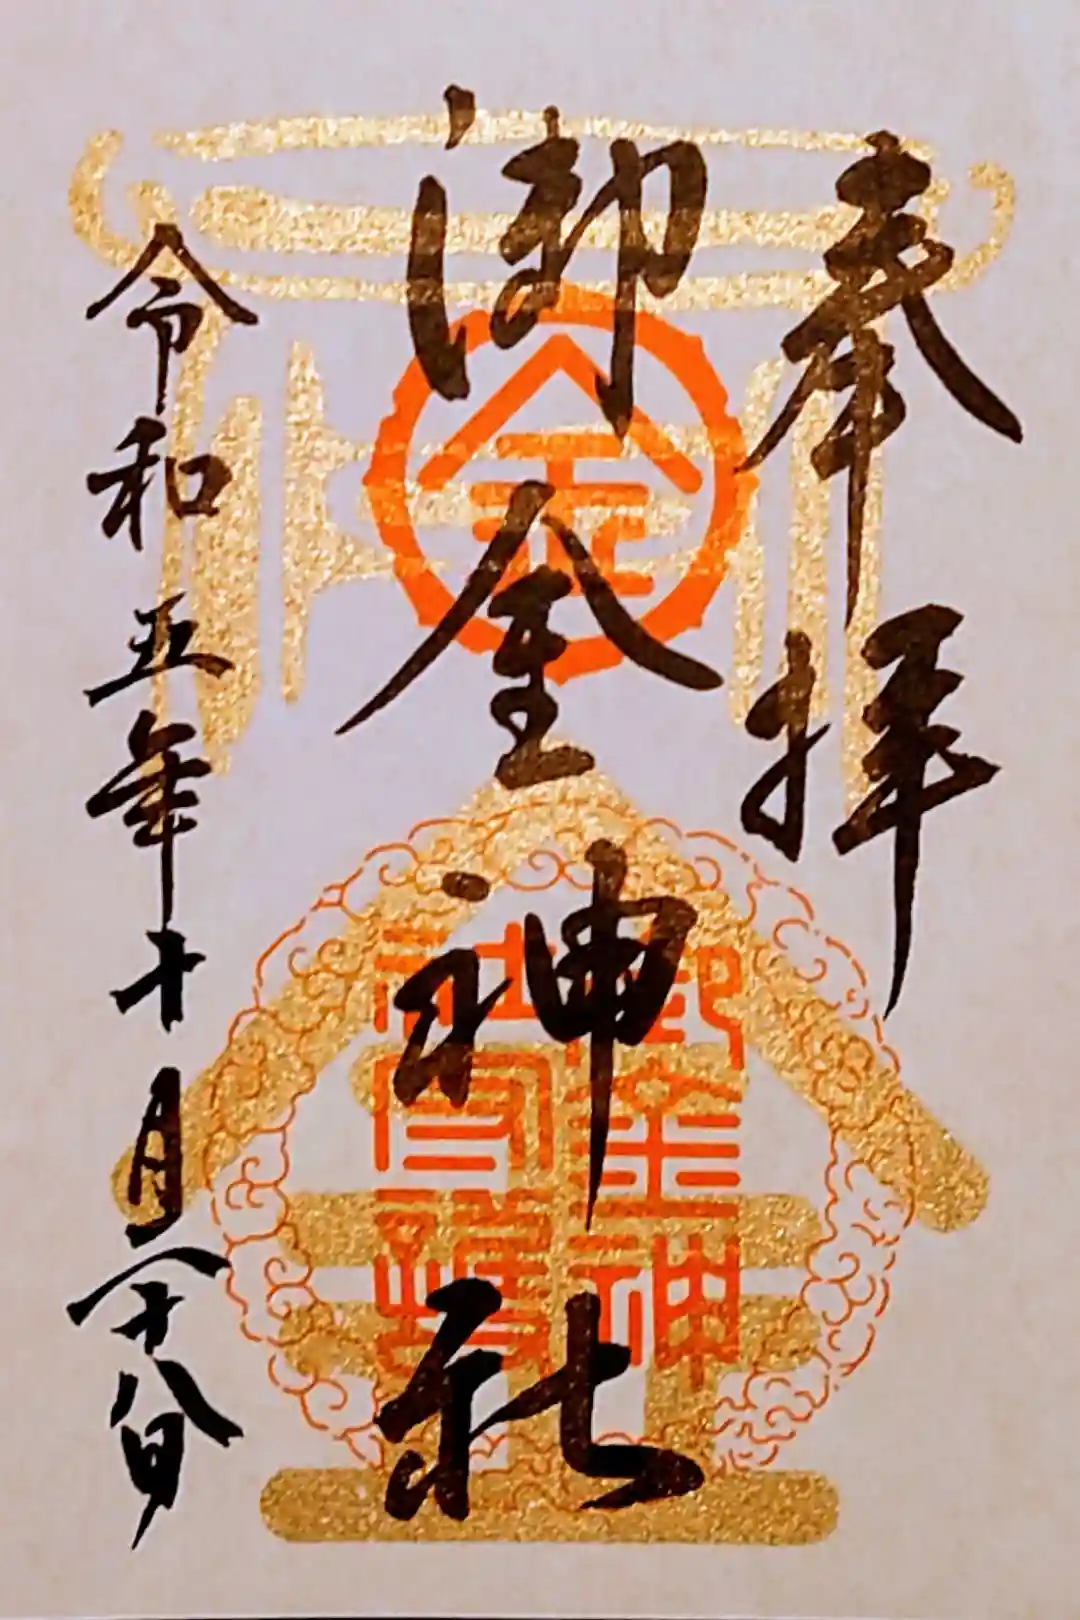 奉拝
御金神社
令和五年十月二十八日
金
御金神
社守護